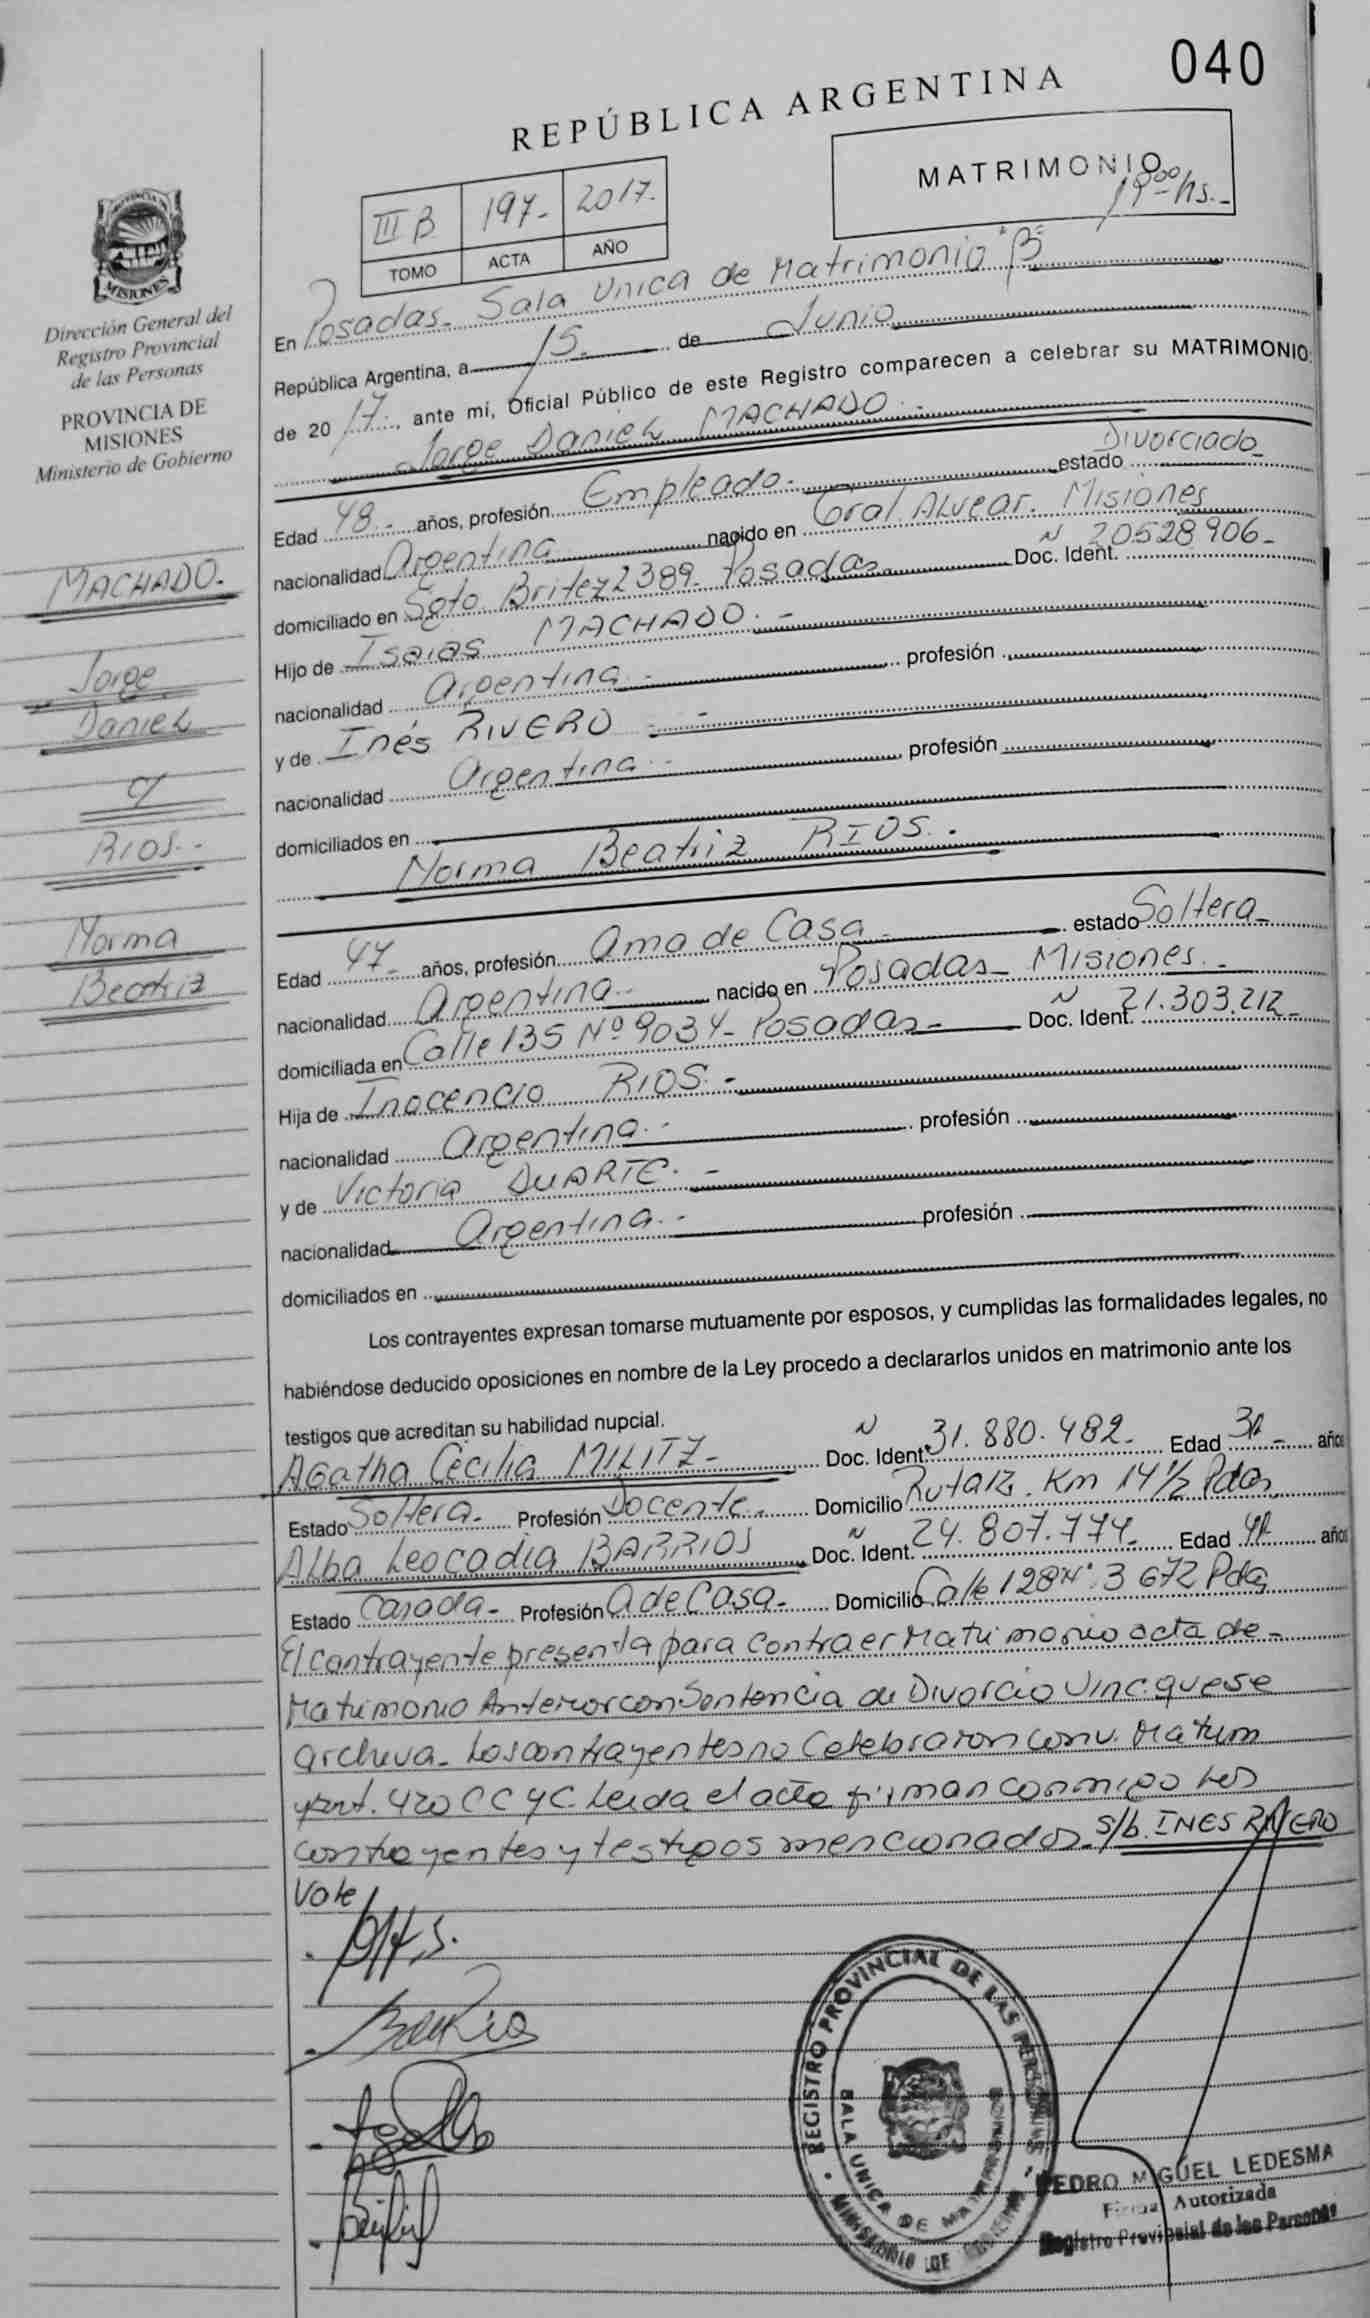 040
REPÚBLICA ARGENTINA
MATRIMONIO
19ºº hs.-
III B 197- 2017.
TOMO ACTA AÑO
MISIONES
Dirección General del
Registro Provincial
de las Personas
PROVINCIA DE
MISIONES
Ministerio de Gobierno
MACHADO.
Jorge
Daniel
c/
RIOS.-
Norma
Beatriz
En Posadas- Sala Unica de Matrimonio "B"
República Argentina, a 15.- de Junio
de 20 17., ante mí, Oficial Público de este Registro comparecen a celebrar su MATRIMONIO:
Jorge Daniel MACHADO.-
Edad 48.- años, profesión Empleado.- estado Divorciado-
nacionalidad Argentina nacido en Gral. Alvear. Misiones
domiciliado en Sgto. Britez 2389- Posadas Doc. Ident. N 20528906-
Hijo de Isaias MACHADO.-
nacionalidad Argentina.- profesión
y de Inés RIVERO -
nacionalidad Argentina.- profesión
domiciliados en
Norma Beatriz RIOS.-
Edad 47- años, profesión Ama de Casa- estado Soltera-
nacionalidad Argentina- nacido en Posadas- Misiones.-
domiciliada en Calle 135 Nº 9034- Posadas- Doc. Ident. N 21.303.212-
Hija de Inocencio RIOS.-
nacionalidad Argentina.- profesión
y de Victoria DUARTE.-
nacionalidad Argentina.- profesión
domiciliados en
Los contrayentes expresan tomarse mutuamente por esposos, y cumplidas las formalidades legales, no
habiéndose deducido oposiciones en nombre de la Ley procedo a declararlos unidos en matrimonio ante los
testigos que acreditan su habilidad nupcial.
Agatha Cecilia MILITZ- Doc. Ident. N 31.880.482- Edad años
Estado Soltera- Profesión Docente- Domicilio Ruta 12. Km 14 1/2 Pdas
Alba Leocadia BARRIOS Doc. Ident. N 24.807.774- Edad años
Estado Casada- Profesión A de Casa- Domicilio Calle 128 Nº 3672 Pdas
El contrayente presenta para contraer Matrimonio acta de-
Matrimonio Anterior con Sentencia de Divorcio Vinc. que se
archiva- Los contrayentes no Celebraron conv. Matrim
art. 420 CC y C. Leida el acta firman conmigo los
contrayentes y testigos mencionados- s/b. INES RIVERO
Vale
REGISTRO PROVINCIAL DE LAS PERSONAS
SALA UNICA DE MATRIMONIOS
MINISTERIO DE GOBIERNO
PEDRO MIGUEL LEDESMA
Firma Autorizada
Registro Provincial de las Personas